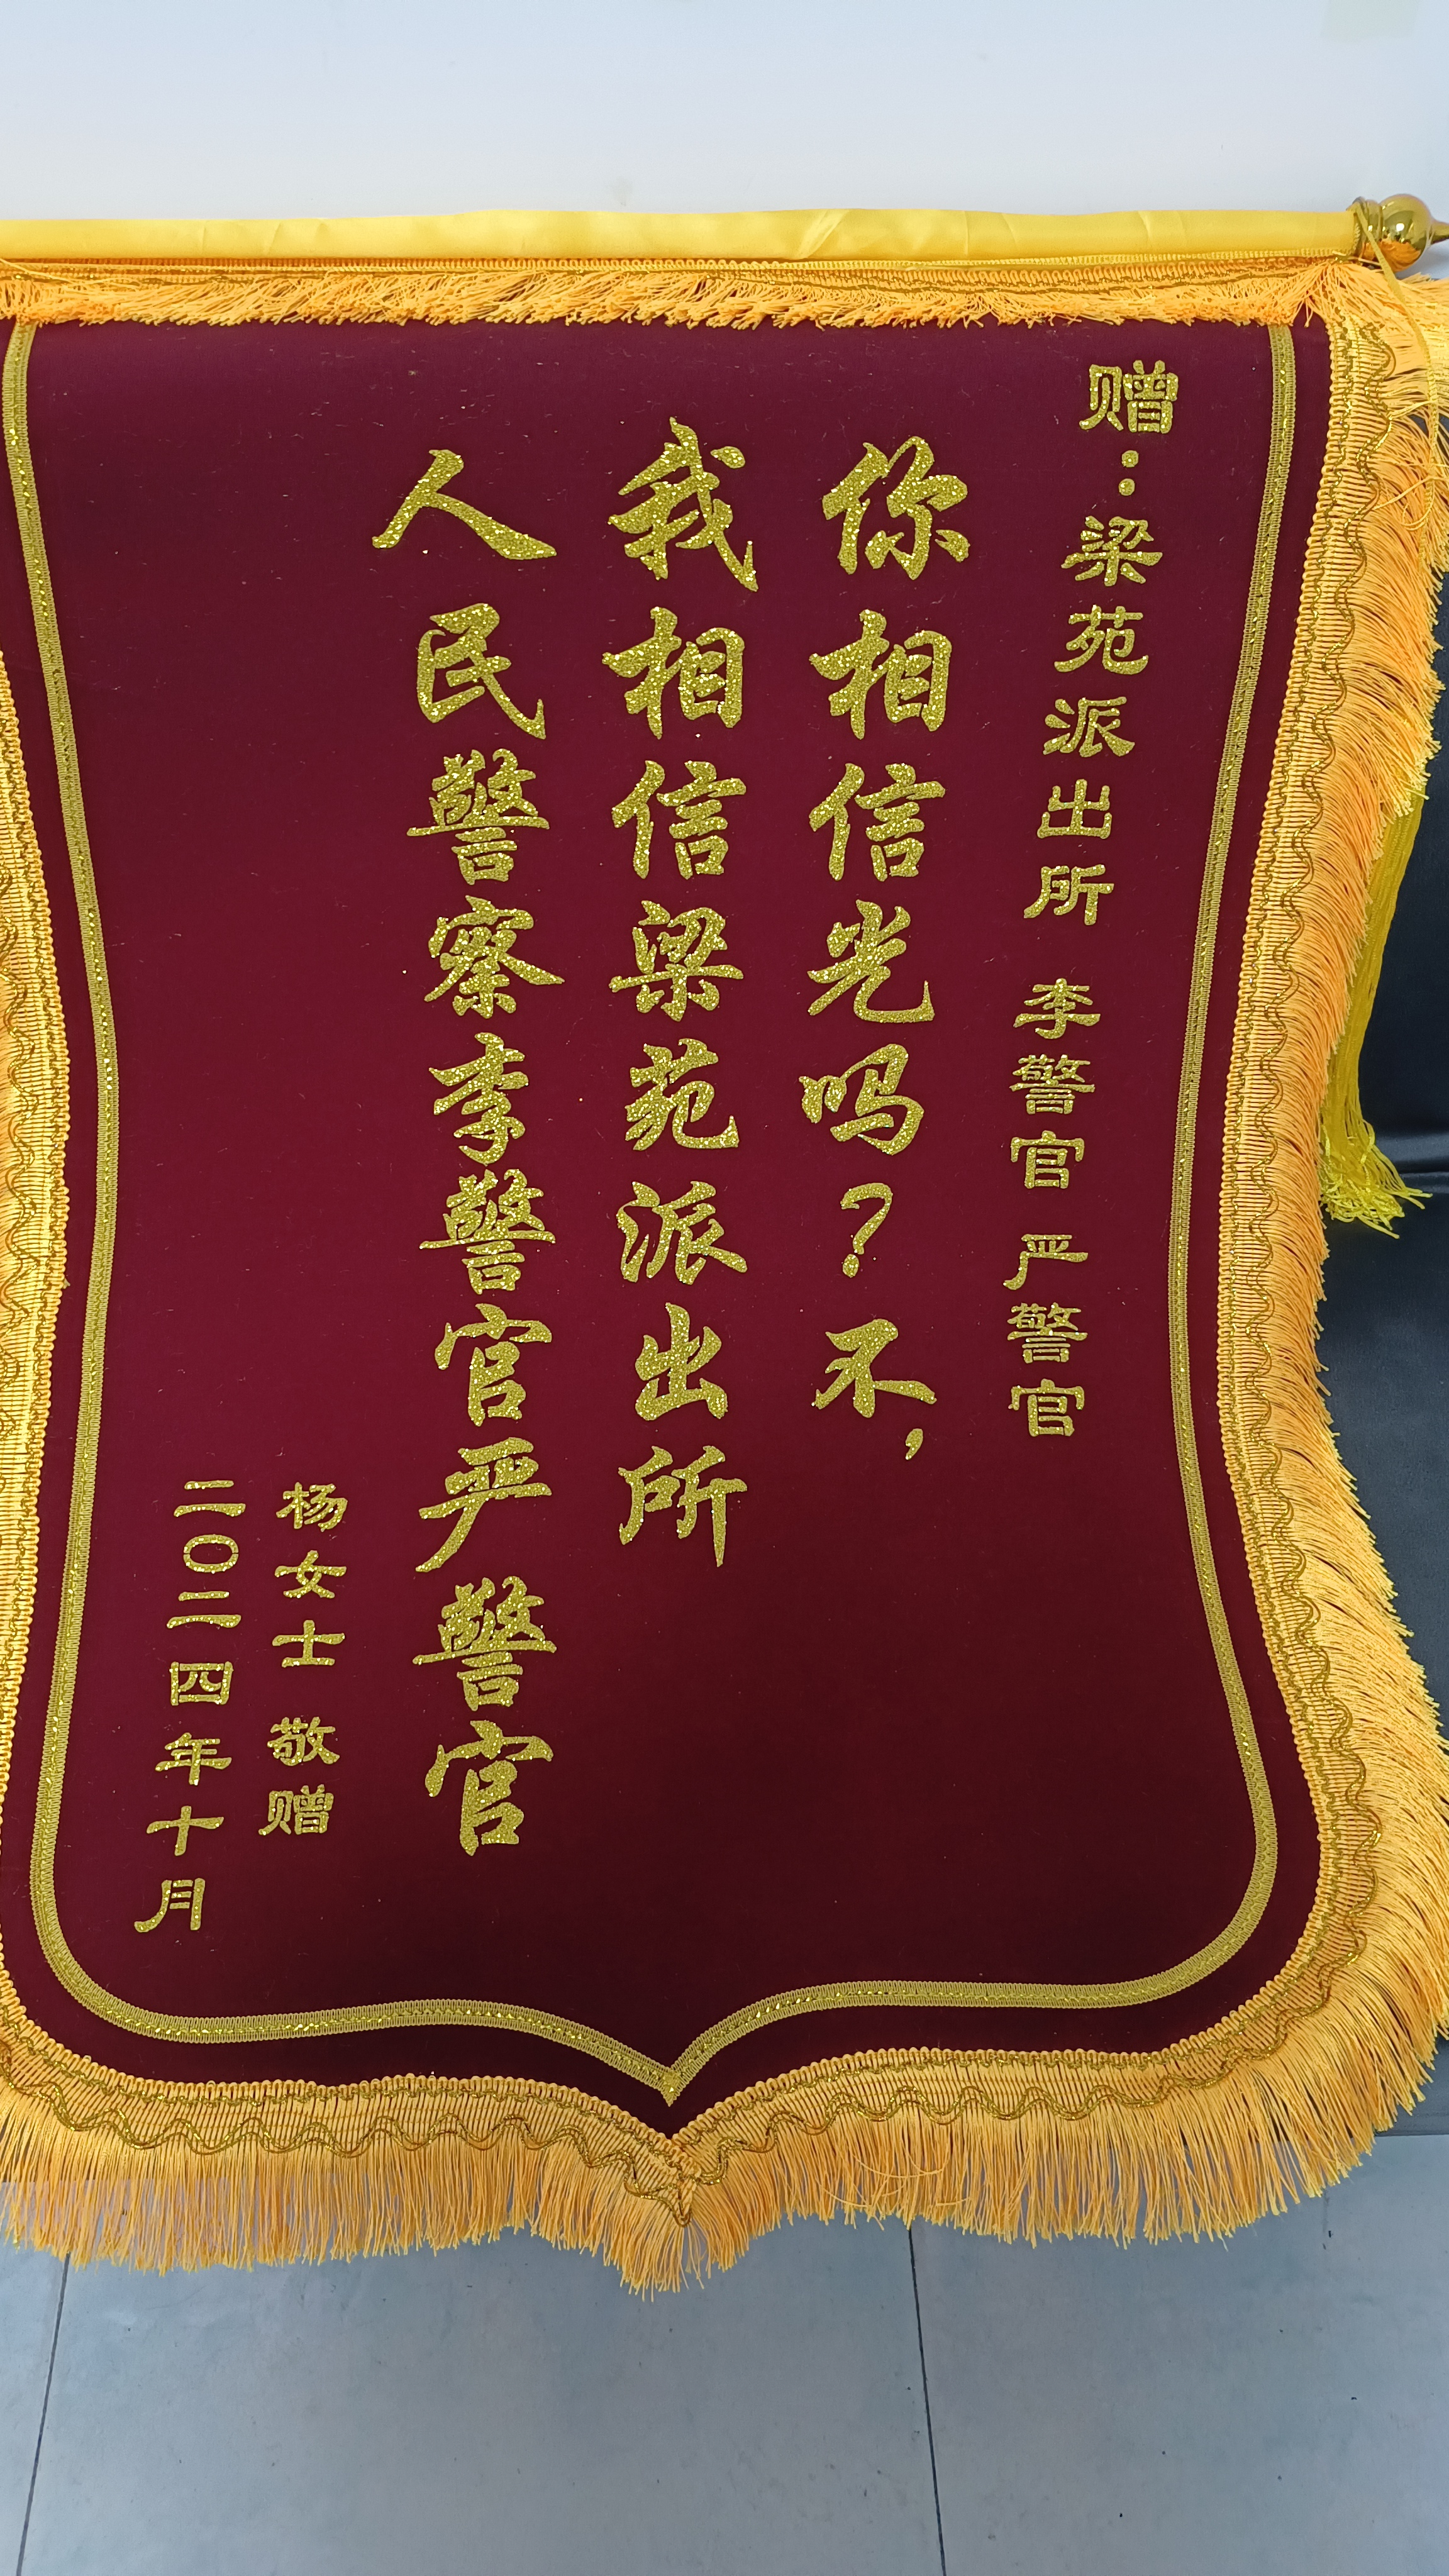 赠：梁苑派出所 李警官 严警官
你相信光吗？不，
我相信梁苑派出所
人民警察李警官严警官
杨女士 敬赠
二〇二四年十月